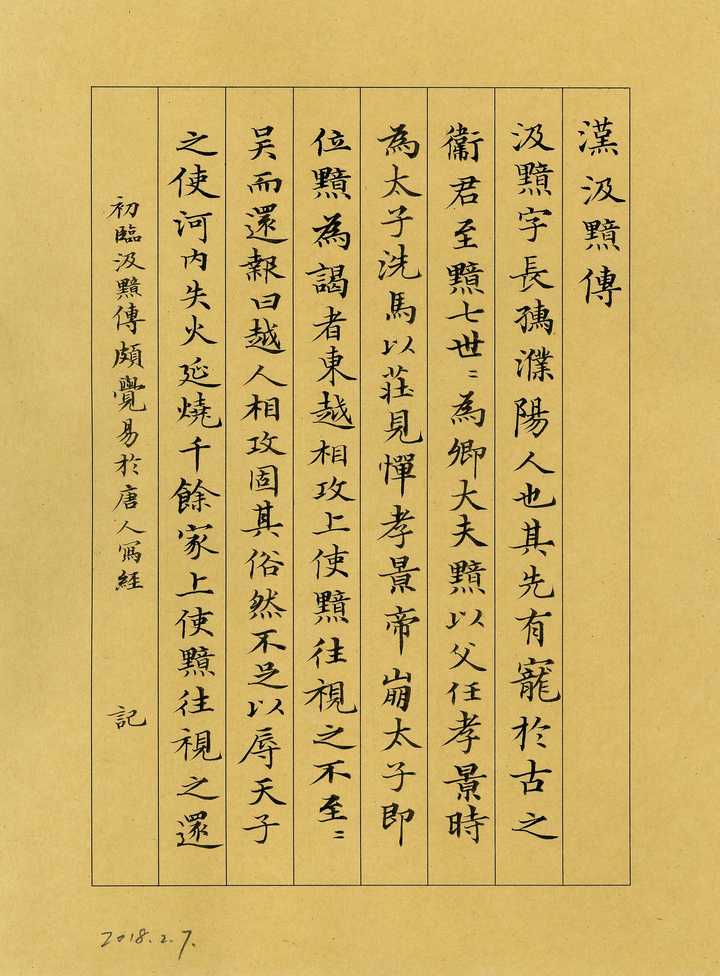 漢汲黯傳
汲黯字長孺濮陽人也其先有寵於古之
衛君至黯七世〻為卿大夫黯以父任孝景時
為太子洗馬以莊見憚孝景帝崩太子即
位黯為謁者東越相攻上使黯往視之不至〻
吳而還報曰越人相攻固其俗然不足以辱天子
之使河内失火延燒千餘家上使黯往視之還
初臨汲黯傳頗覺易於唐人寫經 記
2018.2.7.